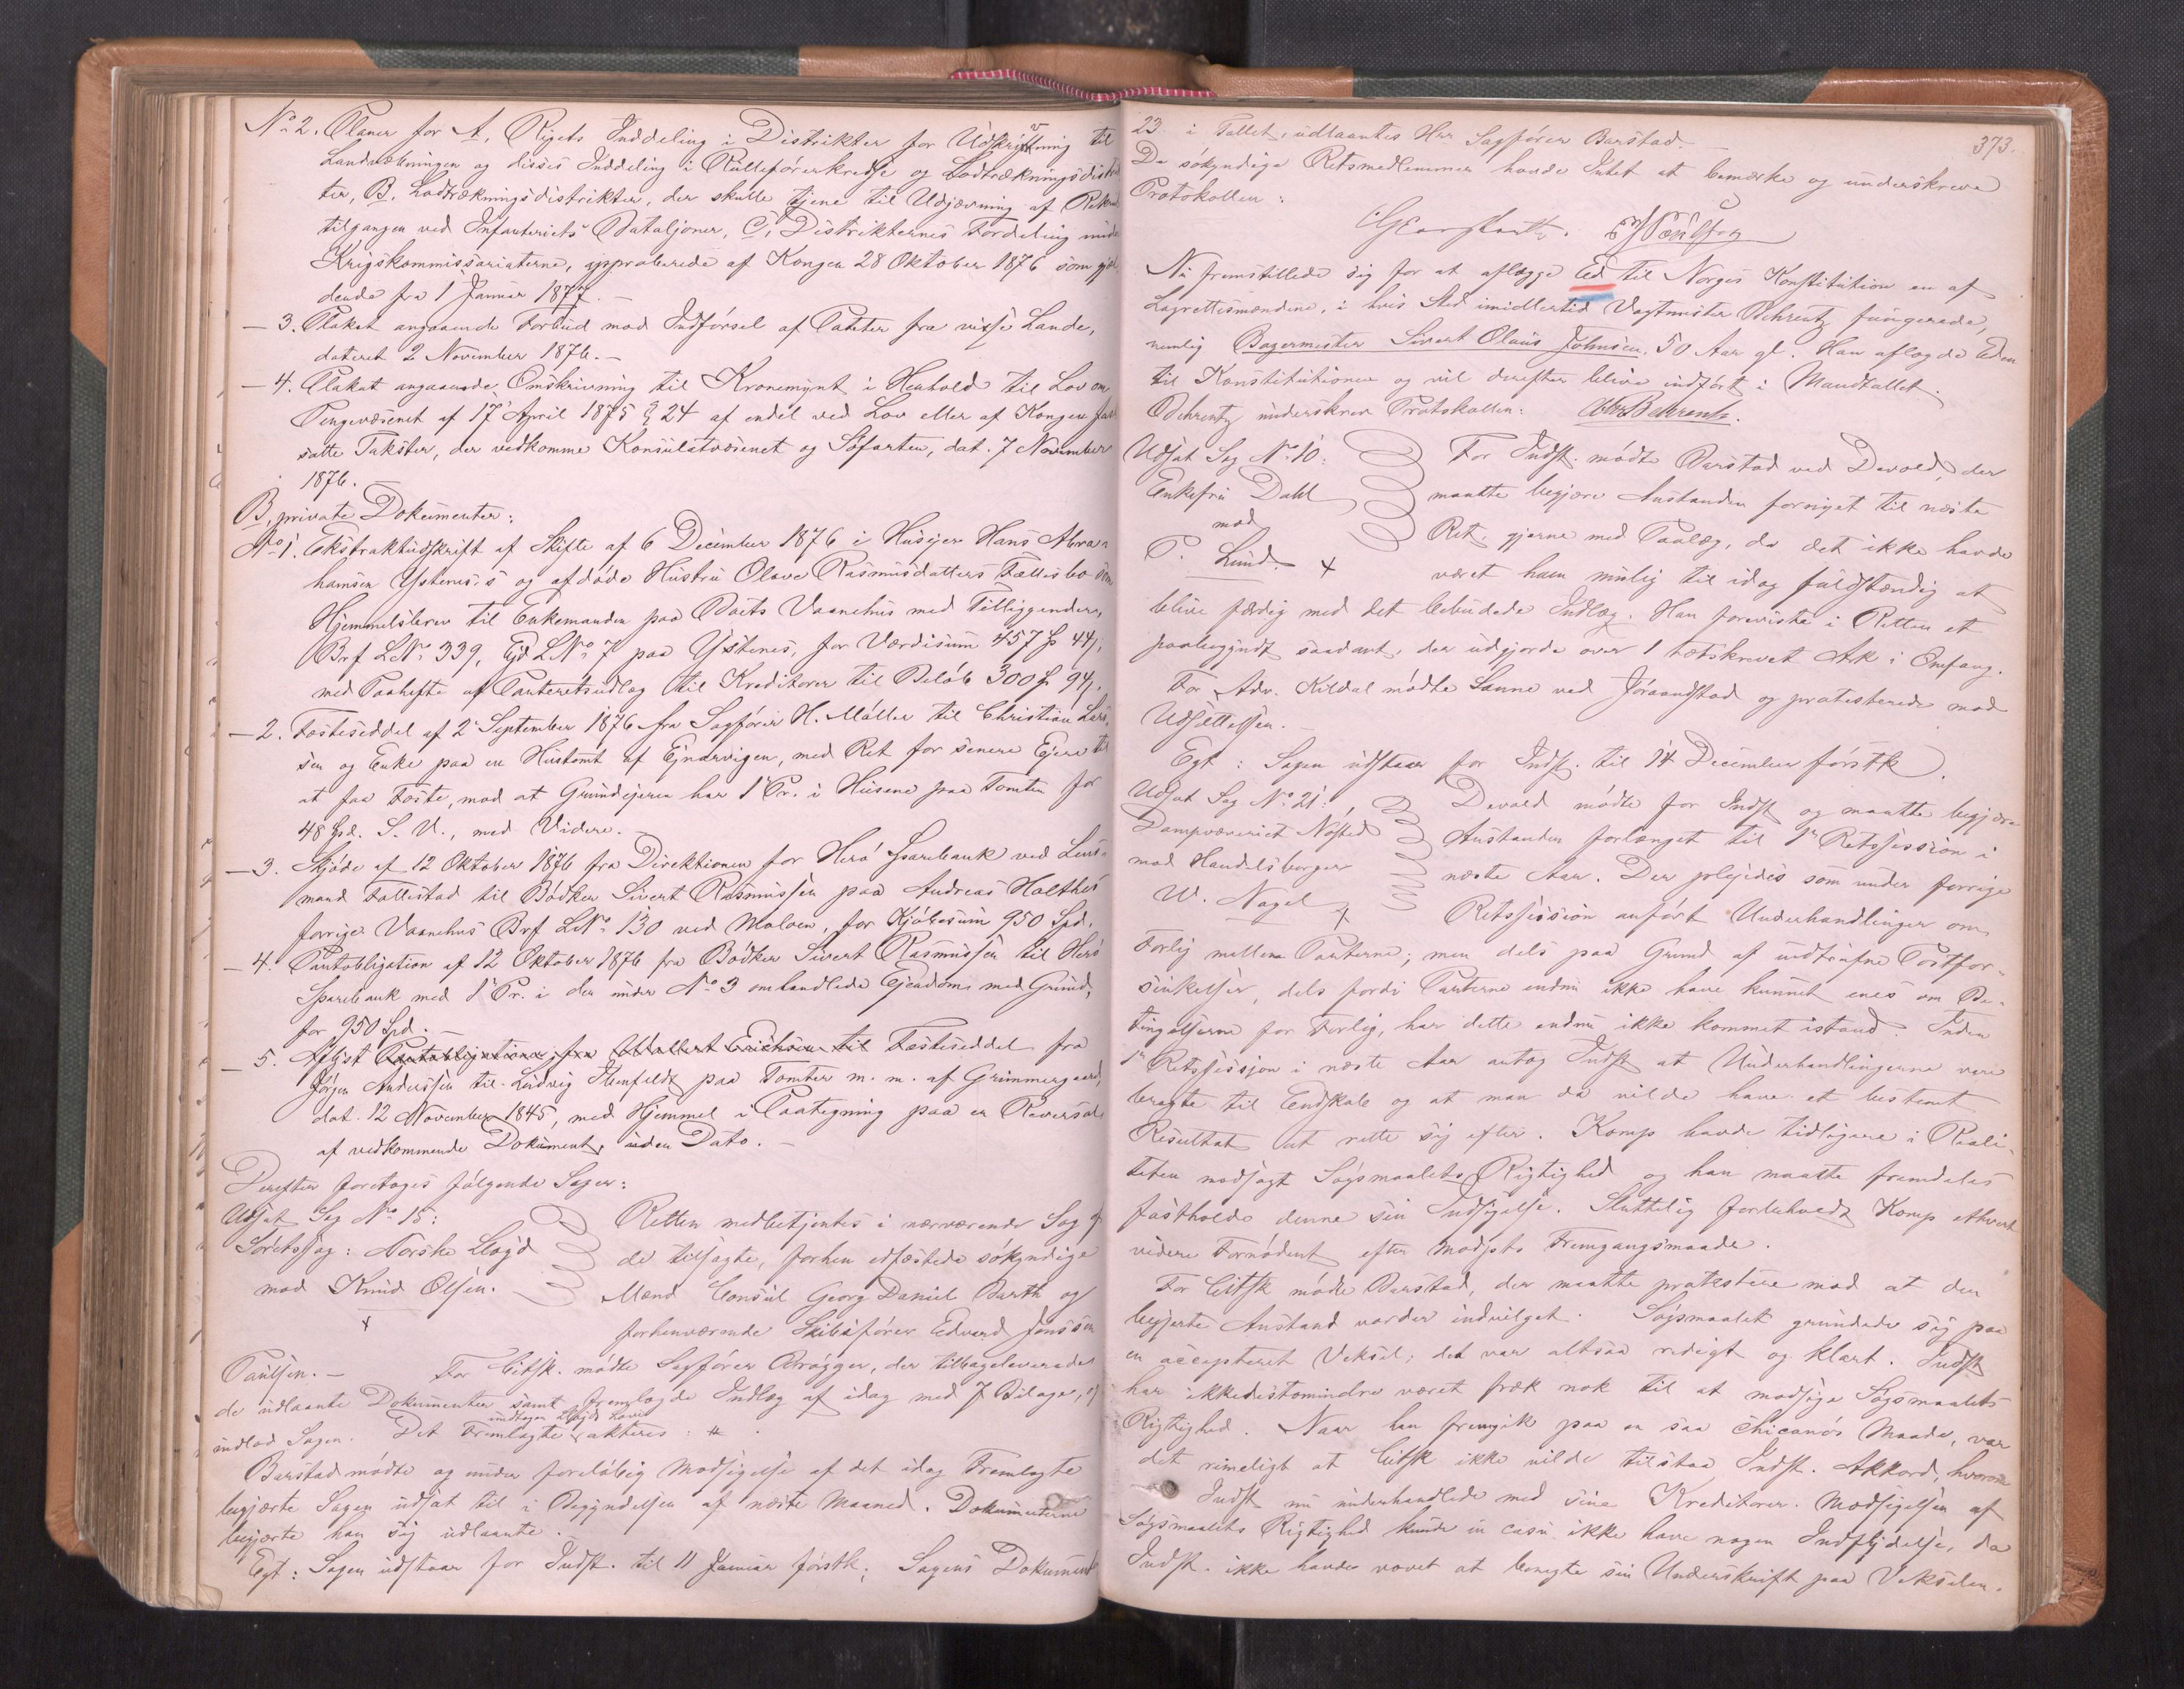 No 2. Planer for A, Rigets Inddeling i Distrikter for Udskrivning til
Landvæbningen og disses Inddeling i Rulleførerkredse og Lodtrækningsdistrik
ter, B. Lodtrækningsdistrikter, der skulle tjene til Udjævning af Rekrut
tilgangen ved Infanteriets Bataljoner, C, Distrikternes Fordeling under
Krigskommissariaterne, approberede af Kongen 28 Oktober 1876 som gjæl
dende fra 1 Januar 1877. –
– 3. Plakat angaaende Forbud mod Indførsel af Poteter fra visse Lande,
dateret 2 November 1876. –
– 4. Plakat angaaende Omskrivning til Kronemynt i Henhold til Lov om
Pengevæsenet af 17 April 1875 § 24 af endel ved Lov eller af Kongen fast
satte Takster, der vedkomme Konsulatvæsenet og Søfarten, dat. 7 November
1876.
B, private Dokumenter:
No 1. Ekstraktudskrift af Skifte af 6 December 1876 i Husejer Hans Abra-
hamsen Ystenes's og afdøde Hustru Olave Rasmusdatters Fællesbo som
Hjemmelsbrev til Enkemanden paa Boets Vaanehus med Tilliggender,
Brf LNo 339, Ejd LNo 7 paa Ystenes, for Værdisum 457 Sp 44 s;
med Paahefte af Panteretsudlæg til Kreditorer til Beløb 300 Sp 94 s.
– 2. Fæsteseddel af 2 September 1876 fra Sagfører H. Møller til Christian Lars
sen og Enke paa en Hustomt af Ejnarvigen, med Ret for senere Ejere til
at faa Fæste, mod at Grundejeren har 1 Pr. i Husene paa Tomten for
48 Spd. S. V., med Videre. –
– 3. Skjøde af 12 Oktober 1876 fra Direktionen for Herø Sparebank ved Lens-
mand Fallestad til Bødker Sivert Rasmussen paa Andreas Holthes
forrige Vaanehus Brf LNo 130 ved Moloen, for Kjøbesum 950 Spd.
– 4. Pantobligation af 12 Oktober 1876 fra Bødker Sivert Rasmussen til Herø
Sparebank med 1 Pr. i den under No 3 omhandlede Ejendom med Grund,
for 950 Spd. –
– 5. Aflyst Pantobligation fra Erichsen til Fæsteseddel fra
Jørgen Anderssen til Ludvig paa Tomter m. m. af Grimmergaard,
dat. 12 November 1845, med Hjemmel i Paategning paa en Reversal
af vedkommende Dokument, uden Dato. –
Derefter foretoges følgende Sager:
Udsat Sag No 15:
Søretssag: Norske Lloyd
mod Knud Olsen.
Retten medbetjentes i nærværende Sag af
de tilsagte, forhen edfæstede søkyndige
Mænd Consul Georg Daniel Barth og
forhenværende Skibsfører Edvard Jonssen
Paulsen. – For Citsk. mødte Sagfører Brøgger, der tilbageleverede
de udlaante Dokumenter samt fremlagde Indlæg af idag med 7 Bilage, og
undtagen Lloyds Love
indlod Sagen. Det Fremlagte akteres:
Barstad mødte og under foreløbig Modsigelse af det idag Fremlagte
begjærte Sagen udsat til i Begyndelsen af næste Maaned. Dokumenterne
begjærte han sig udlaante.
Egt: Sagen udstaar for Indst. til 11 Januar førstk. Sagens Dokument
373.
23 i Tallet, udlaantes Hr. Sagfører Barstad. –
De søkyndige Retsmedlemmer havde Intet at bemærke og underskreve
Protokollen:
Nu fremstillede sig for at aflægge Ed til Norges Konstitution en af
Lagrettesmændene, i hvis Sted imidlertid Vagtmester Behrentz fungerede,
nemlig Bagermester Sivert Olaus Johnsen, 50 Aar gl. Han aflagde Eden
til Konstitutionen og vil derefter blive indført i Mandtallet.
Behrentz underskrev Protokollen: Behrentz.
Udsat Sag No 10:
Enkefru Dahl
mod
P. Lund.
For Indst. mødte Barstad ved Devold, der
maatte begjære Anstanden fornyet til næste
Ret, gjerne med Paalæg, da det ikke havde
været ham mulig til idag fuldstændig at
blive færdig med det bebudede Indlæg. Han foreviste i Retten et
paabegyndt saadant, der udgjorde over 1 tætskrevet Ark i Omfang.
For Adv. Kildal mødte Sanne ved Jøraandstad og protesterede mod
Udsættelsen. –
Egt: Sagen udstaar for Indst. til 14 December førstk.
Udsat Sag No 21:
Dampvæveriet Nøsted
mod Handelsborger
W. Nagel
Devold mødte for Indst og maatte begjære
Anstanden forlænget til 1ste Retssession i
næste Aar. Der plejedes som under forrige
Retssession anført Underhandlinger om
Forlig mellem Parterne; men dels paa Grund af indtrufne Postfor-
sinkelser, dels fordi Parterne endnu ikke have kunnet enes om Be-
tingelserne for Forlig, har dette endnu ikke kommet istand. Inden
1ste Retssession i næste Aar antog Indst at Underhandlingerne vare
bragte til Endskab og at man da vilde have et bestemt
Resultat at rette sig efter. Komp. havde tidligere i Reali-
teten modsagt Søgsmaalets Rigtighed og han maatte fremdeles
fastholde denne sin Indsigelse. Sluttelig forbeholdt Komp ethvert
videre Fornødent efter Modpts Fremgangsmaade.
For Citsk mødte Barstad, der maatte protestere mod at den
begjærte Anstand vorder indvilget. Søgsmaalet grundede sig paa
en accepteret Veksel; det var altsaa redigt og klart. Indst
har ikkedestomindre været fræk nok til at modsige Søgsmaalets
Rigtighed. Naar han fremgik paa en saa chicanøs Maade, var
det rimeligt at Citsk ikke vilde tilstaa Indst. Akkord, hvorom
Indst nu underhandlede med sine Kreditorer. Modsigelsen af
Søgsmaalets Rigtighed kunde in casu ikke have nogen Indflydelse, da
Indst. ikke havde vovet at benegte sin Underskrift paa Vekselen.